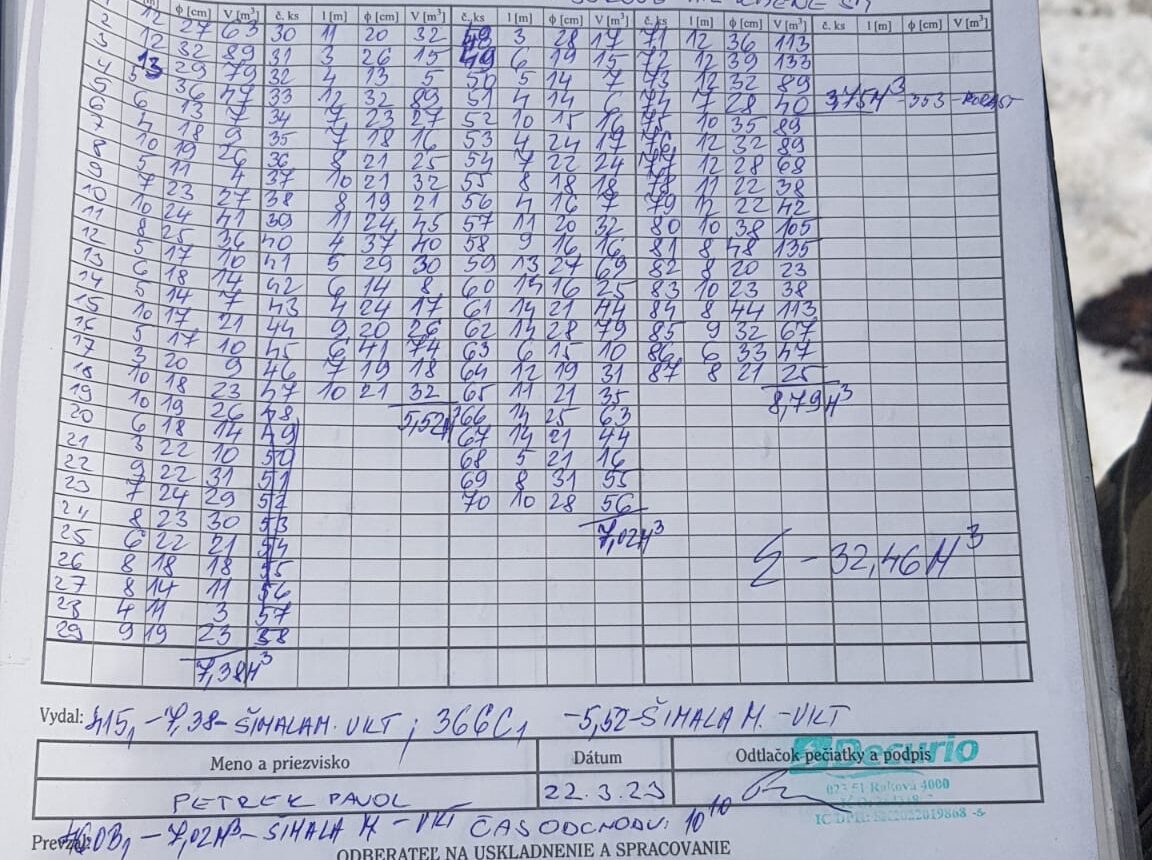 ϕ [cm] V [m³] č. ks l [m] ϕ [cm] V [m³] č. ks l [m] ϕ [cm] V [m³] č. ks l [m] ϕ [cm] V [m³] č. ks l [m] ϕ [cm] V [m³]
12 27 63 30 11 20 32 48 3 28 17 71 12 36 113
2 12 32 89 31 3 26 15 49 6 19 15 72 12 39 133
3 13 29 79 32 4 13 5 50 5 14 7 73 12 32 89
4 5 36 47 33 12 32 89 51 4 14 6 74 7 28 40 3754³ - 353 -
5 6 13 7 34 7 23 27 52 10 15 16 75 10 35 89
6 4 18 9 35 7 18 16 53 4 24 17 76 12 32 89
7 10 19 26 36 8 21 25 54 7 22 24 77 12 28 68
8 5 11 4 37 10 21 32 55 8 18 18 78 11 22 38
9 7 23 27 38 8 19 21 56 4 16 7 79 12 22 42
10 10 24 41 39 11 24 45 57 11 20 32 80 10 38 105
11 8 25 36 40 4 37 40 58 9 16 16 81 8 48 135
12 5 17 10 41 5 29 30 59 13 27 69 82 8 20 23
13 6 18 14 42 6 14 8 60 14 16 25 83 10 23 38
14 5 14 7 43 4 24 17 61 14 21 44 84 8 44 113
15 10 17 21 44 9 20 26 62 14 28 79 85 9 32 67
16 5 17 10 45 6 41 74 63 6 15 10 86 6 33 47
17 3 20 9 46 7 19 18 64 12 19 31 87 8 21 25
18 10 18 23 47 10 21 32 65 11 21 35 8,79 M³
19 10 19 26 48 5,52 M³ 66 14 25 63
20 6 18 14 49 67 14 21 44
21 3 22 10 50 68 5 21 16
22 9 22 31 51 69 8 31 55
23 7 24 29 52 70 10 28 56
24 8 23 30 53 7,02 M³
25 6 22 21 54 Σ - 32,46 M³
26 8 18 18 55
27 8 14 11 56
28 4 11 3 57
29 9 19 23 58
7,38 M³
Vydal: 415, - 7,38 - ŠIMALA M. VKT ; 366C, - 5,52 - ŠIMALA M. - VKT
Meno a priezvisko Dátum Odtlačok pečiatky a podpis
Decurio
PETREK PAVOL 22.3.23 023 51 Raková 4000
IČ DPH: SK2022019868
Prevzal: 0B, - 7,02 M³ - ŠIMALA M - VKT ČAS ODCHODU: 10¹⁰
ODBERATEĽ NA USKLADNENIE A SPRACOVANIE